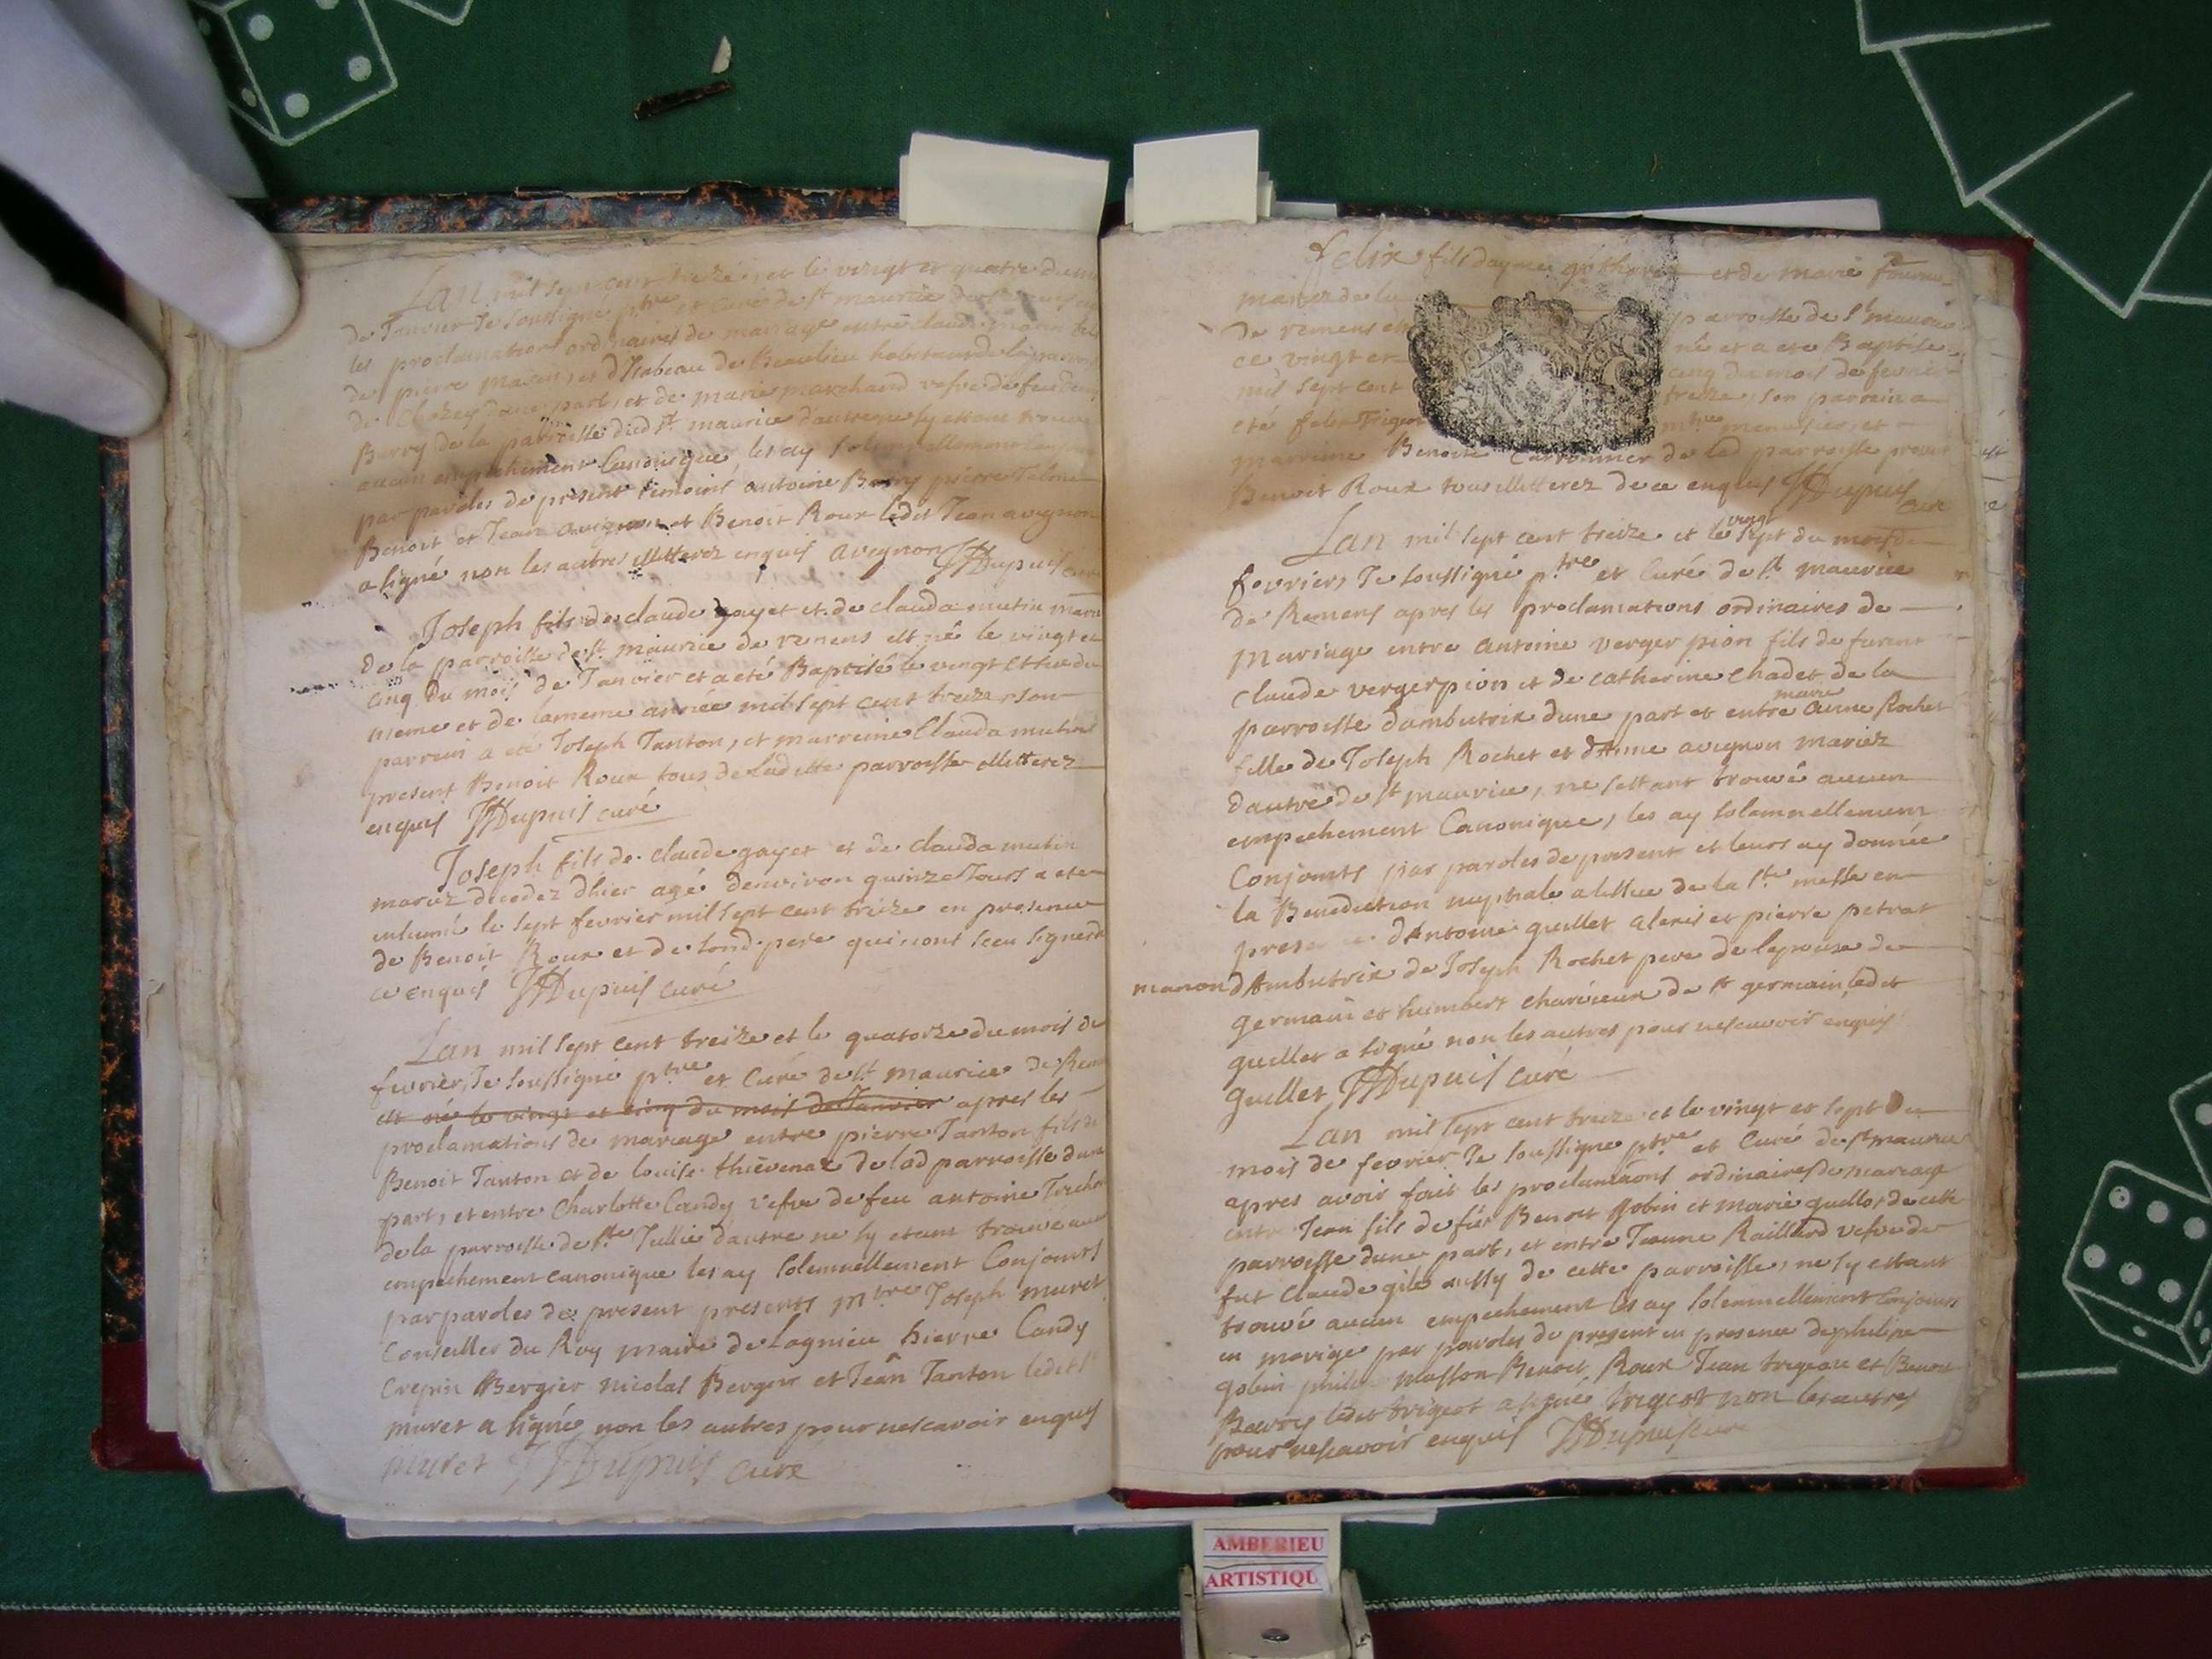 Lan mil sept cent treize, et le vingt et quatre du mois
de Janvier Je soussigné ptre et Curé de st maurice de
les proclamations ordinaires de mariage entre claude marin fils
de pierre marin, et d'Isabeau de Beaulieu habitants de la parroisse
de Chazey dune part, et de marie marchand vefve de feu
Berry de la parroisse dud st maurice dautre ne sy estant trouvé
aucun empechement Canonique les ay solemnellement
par paroles de present temoins antoine Berry pierre
Benoit et Jean avignon et Benoit Roux ledit Jean avignon
a signé non les autres illitterez enquis avignon JfDupuis curé
Joseph fils de claude gayet et de clauda mutin mariez
de la parroisse de st maurice de remens est né le vingt et
cinq du mois de Janvier et a eté Baptisé le vingt et six du
meme et de la meme année mil sept cent treize, son
parrein a eté Joseph Tanton, et marreine Clauda mutin
present Benoit Roux tous de laditte parroisse illitterez
enquis JfDupuis curé
Joseph fils de claude gayet et de clauda mutin
mariez decedez dhier agé denviron quinze Jours a eté
enhumé le sept fevrier mil sept cent treize en presence
de Benoit Roux et de sond. pere qui nont sceu signer
ce enquis JfDupuis curé
Lan mil sept cent treize et le quatorze du mois de
fevrier, Je soussigné ptre et Curé de st maurice de Remens
est né le vingt et cinq du mois de Janvier apres les
proclamations de mariage entre pierre Tanton fils de
Benoit Tanton et de louise thievenaz de lad parroisse dune
part, et entre Charlotte Candy vefve de feu antoine
de la parroisse de ste Jullie dautre ne sy etant trouvé aucun
empechement canonique les ay solemnellement Conjoints
par paroles de present presents mtre Joseph muret
Conseiller du Roy maire de Lagnieu hierre Candy
Crepin Bergier nicolas Berger et Jean Tanton ledit sr
muret a signé non les autres pour ne scavoir enquis
muret JfDupuis curé
felix fils daymé et de marie
mariez de la parroisse de st maurice
de remens est né et a eté Baptisé
ce vingt et cinq du mois de fevrier
mil sept cent treize, son parrein a
eté felix Trigot mtre menuisier, et
marreine Benoite Charbonnier de lad parroisse present
Benoit Roux tous illitterez de ce enquis JfDupuis curé
Lan mil sept cent treize et le vingt sept du mois de
fevrier, Je soussigné ptre et Curé de st maurice
de Remens apres les proclamations ordinaires de
mariage entre antoine verger pion fils de furent
claude vergerpion et de catherine chadet de la
parroisse dambutrix dune part et entre marie anne Rochet
fille de Joseph Rochet et d'Anne avignon mariez
dautre de st maurice, ne sestant trouvé aucun
empechement Canonique, les ay solemnellement
Conjoints par paroles de present et leurs ay donnée
la Benediction nuptiale a lissue de la ste messe en
presence d'Antoine guillet alexis et pierre petrat
manon d'Ambutrix de Joseph Rochet pere de lepouse de
germain et humbert charveur de st germain ledit
guillet a signé non les autres pour ne scavoir enquis
guillet JfDupuis curé
Lan mil sept cent treize et le vingt et sept du
mois de fevrier Je soussigné ptre et Curé de st maurice
apres avoir fait les proclamaons ordinaires de mariage
entre Jean fils de fut Benoit gobin et marie guillot de cette
parroisse dune part, et entre Jeanne Raillard vefve de
fut Claude gile aussy de cette parroisse, ne sy estant
trouvé aucun empechement les ay solemnellement Conjoints
en mariage par paroles de present en presence de philipe
gobin philipe masson Benoit Roux Jean trigeot et Benoit
Bevroy ledit trigeot a signé trigeot non les autres
pour ne scavoir enquis JfDupuis curé
AMBERIEU
ARTISTIQU